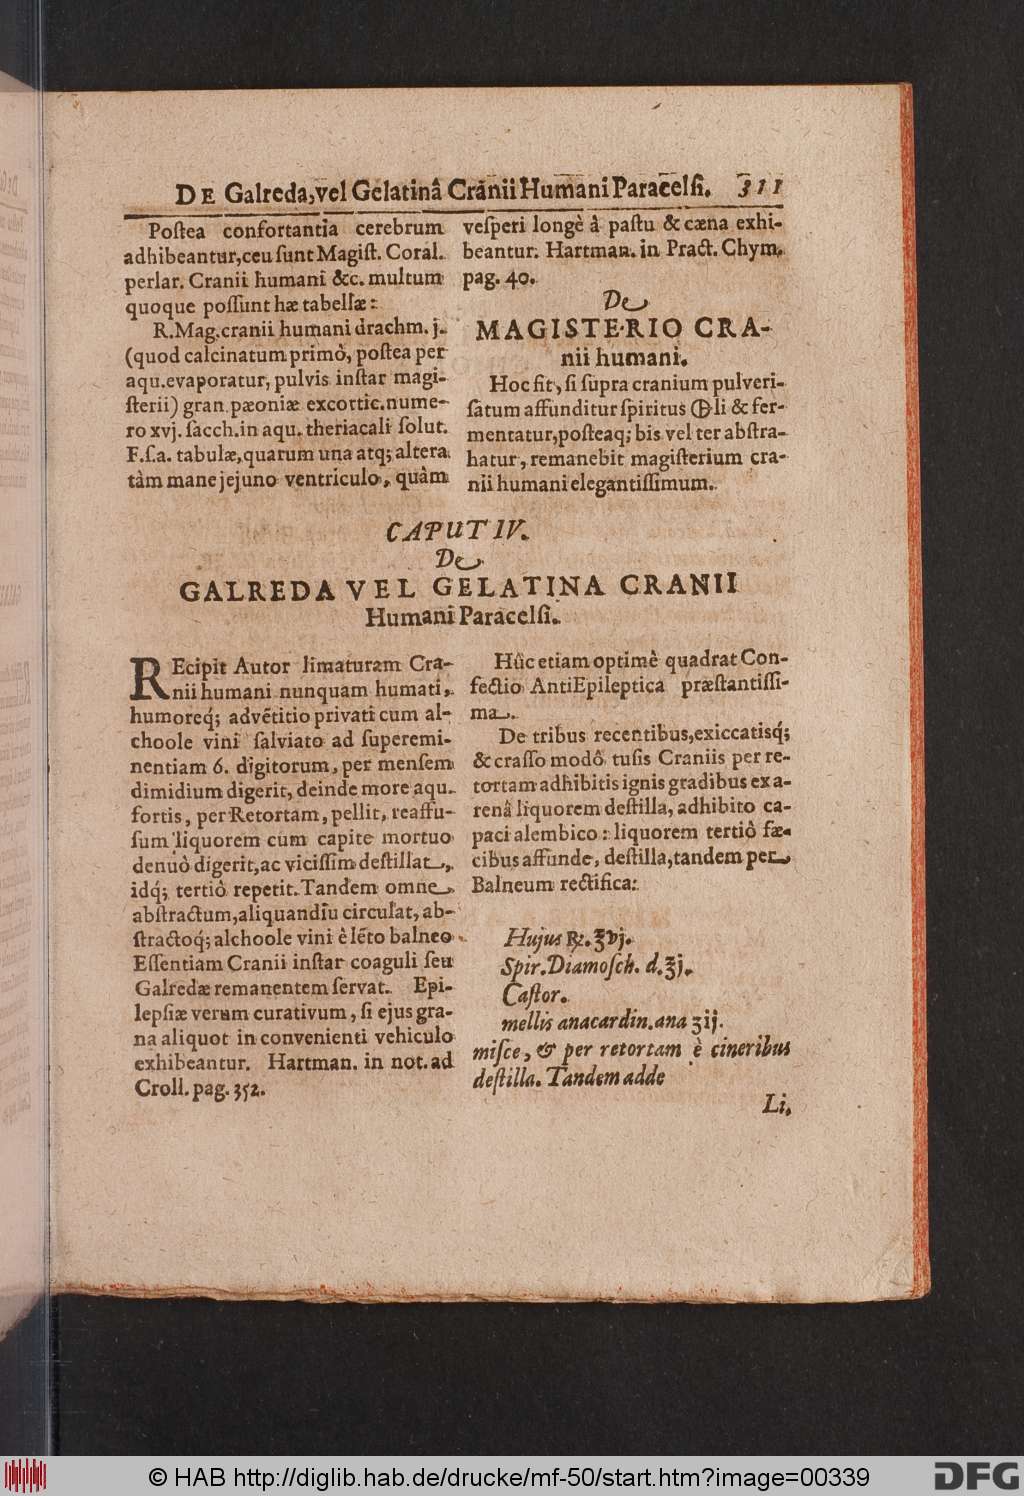 DE Galreda, vel Gelatinâ Cranii Humani Paracelsi. 311
Postea confortantia cerebrum
adhibeantur, ceu sunt Magist. Coral.
perlar. Cranii humani &c. multum
quoque possunt hæ tabellæ:
R. Mag. cranii humani drachm. j.
(quod calcinatum primò, postea per
aqu. evaporatur, pulvis instar magi-
sterii) gran. pæoniæ excortic. nume-
ro xvj. sacch. in aqu. theriacali solut.
F. s. a. tabulæ, quarum una atq; altera
tàm mane jejuno ventriculo, quàm
vesperi longè à pastu & cæna exhi-
beantur. Hartman. in Pract. Chym.
pag. 40.
De
MAGISTERIO CRA-
nii humani.
Hoc fit, si supra cranium pulveri-
satum affunditur spiritus li & fer-
mentatur, posteaq; bis vel ter abstra-
hatur, remanebit magisterium cra-
nii humani elegantissimum.
CAPUT IV.
De
GALREDA VEL GELATINA CRANII
Humani Paracelsi.
REcipit Autor limaturam Cra-
nii humani nunquam humati,
humoreq́; advẽtitio privati cum al-
choole vini salviato ad superemi-
nentiam 6. digitorum, per mensem
dimidium digerit, deinde more aqu.
fortis, per Retortam, pellit, reaffu-
sum liquorem cum capite mortuo
denuò digerit, ac vicissim destillat,
idq́; tertiò repetit. Tandem omne,
abstractum, aliquandiu circulat, ab-
stractoq́; alchoole vini è lẽto balneo
Essentiam Cranii instar coaguli seu
Galredæ remanentem servat. Epi-
lepsiæ verum curativum, si ejus gra-
na aliquot in convenienti vehiculo
exhibeantur. Hartman. in not. ad
Croll. pag. 352.
Hûc etiam optimè quadrat Con-
fectio AntiEpileptica præstantissi-
ma.
De tribus recentibus, exiccatisq́;
& crasso modô tusis Craniis per re-
tortam adhibitis ignis gradibus ex a-
renâ liquorem destilla, adhibito ca-
paci alembico: liquorem tertiò fæ-
cibus affunde, destilla, tandem per
Balneum rectifica:
Hujus ℞. ℥vj.
Spir. Diamosch. d. ℥j.
Castor.
mellis anacardin. ana ʒij.
misce, & per retortam è cineribus
destilla. Tandem adde
Li.
© HAB http://diglib.hab.de/drucke/mf-50/start.htm?image=00339
DFG